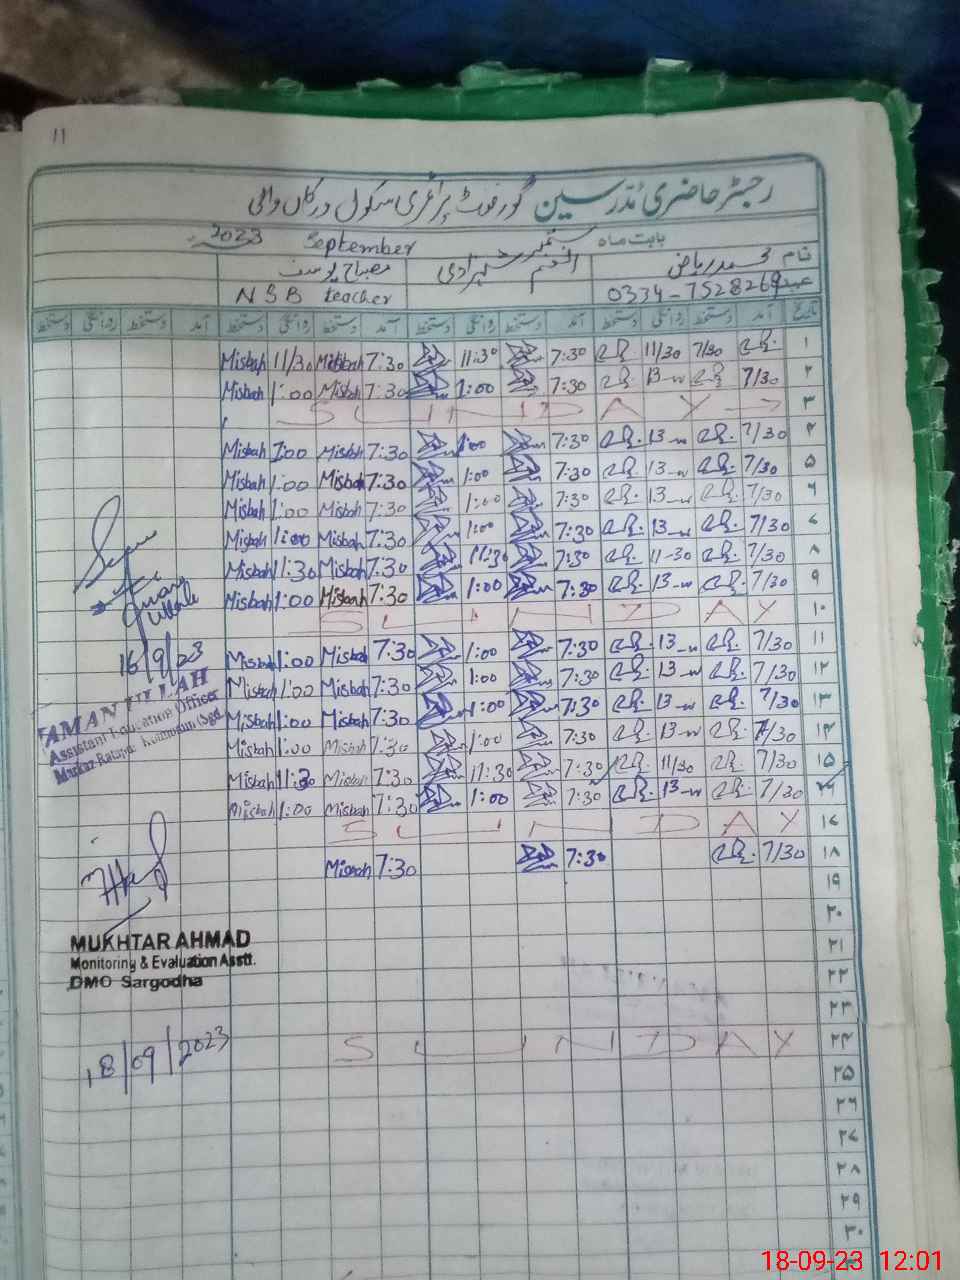 11
رجسٹر حاضری مدرسین گورنمنٹ پرائمری سکول درکاں والی
بابت ماہ ستمبر September 2023
نام محمد ریاض انعم شہزادی مصباح یوسف
عہدہ 0334-7528269 NSB teacher
تاریخ آمد دستخط روانگی دستخط آمد دستخط روانگی دستخط آمد دستخط روانگی دستخط آمد دستخط روانگی دستخط
۱ 7/30 11/30 7:30 11:30 7:30 Misbah 11/30 Misbah
۲ 7/30 13 7:30 1:00 7:30 Misbah 1:00 Misbah
۳ SUNDAY
۴ 7/30 13 7:30 1:00 7:30 Misbah 1:00 Misbah
۵ 7/30 13 7:30 1:00 7:30 Misbah 1:00 Misbah
۶ 7/30 13 7:30 1:00 7:30 Misbah 1:00 Misbah
۷ 7/30 13 7:30 1:00 7:30 Misbah 1:00 Misbah
۸ 7/30 11-30 7:30 11:30 7:30 Misbah 11:30 Misbah
۹ 7/30 13 7:30 1:00 7:30 Misbah 1:00 Misbah
۱۰ SUNDAY
۱۱ 7/30 13 7:30 1:00 7:30 Misbah 1:00 Misbah
۱۲ 7/30 13 7:30 1:00 7:30 Misbah 1:00 Misbah
۱۳ 7/30 13 7:30 1:00 7:30 Misbah 1:00 Misbah
۱۴ 7/30 13 7:30 1:00 7:30 Misbah 1:00 Misbah
۱۵ 7/30 11/30 7:30 11:30 7:30 Misbah 11:30 Misbah
7/30 13 7:30 1:00 7:30 Misbah 1:00 Misbah
SUNDAY
۱۸ 7/30 7:30 7:30 Misbah
۱۹
۲۰
۲۱
۲۲
۲۳
۲۴ SUNDAY
۲۵
۲۶
۲۷
۲۸
۲۹
۳۰
16/9/23
AMAN ULLAH
Assistant Education Officer
MUKHTAR AHMAD
Monitoring & Evaluation Asstt.
DMO Sargodha
18/09/2023
18-09-23 12:01